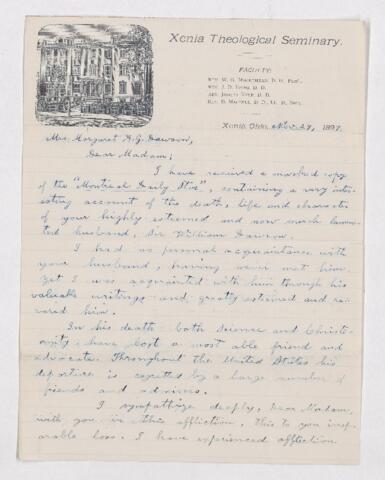 Xenia Theological Seminary.
FACULTY:
REV. W. G. MOOREHEAD, D. D., Prof.
REV. J. D. IRONS, D. D.
REV. JOSEPH KYLE, D. D.
Xenia, Ohio, Nov. 29, 1899.
Mrs. Margaret A. G. Dawson,
Dear Madam:
I have received a marked copy
of the "Montreal Daily Star", containing a very inter-
esting account of the death, life and character
of your highly esteemed and now much lamen-
ted husband, Sir William Dawson.
I had no personal acquaintance with
your husband, having never met him.
Yet I was acquainted with him through his
valuable writings and greatly esteemed and re-
vered him.
In his death both Science and Christi-
anity have lost a most able friend and
advocate. Throughout the United States his
departure is regretted by a large number of
friends and admirers.
I sympathize deeply, dear Madam,
with you in this affliction, this to you irrep-
arable loss. I have experienced affliction